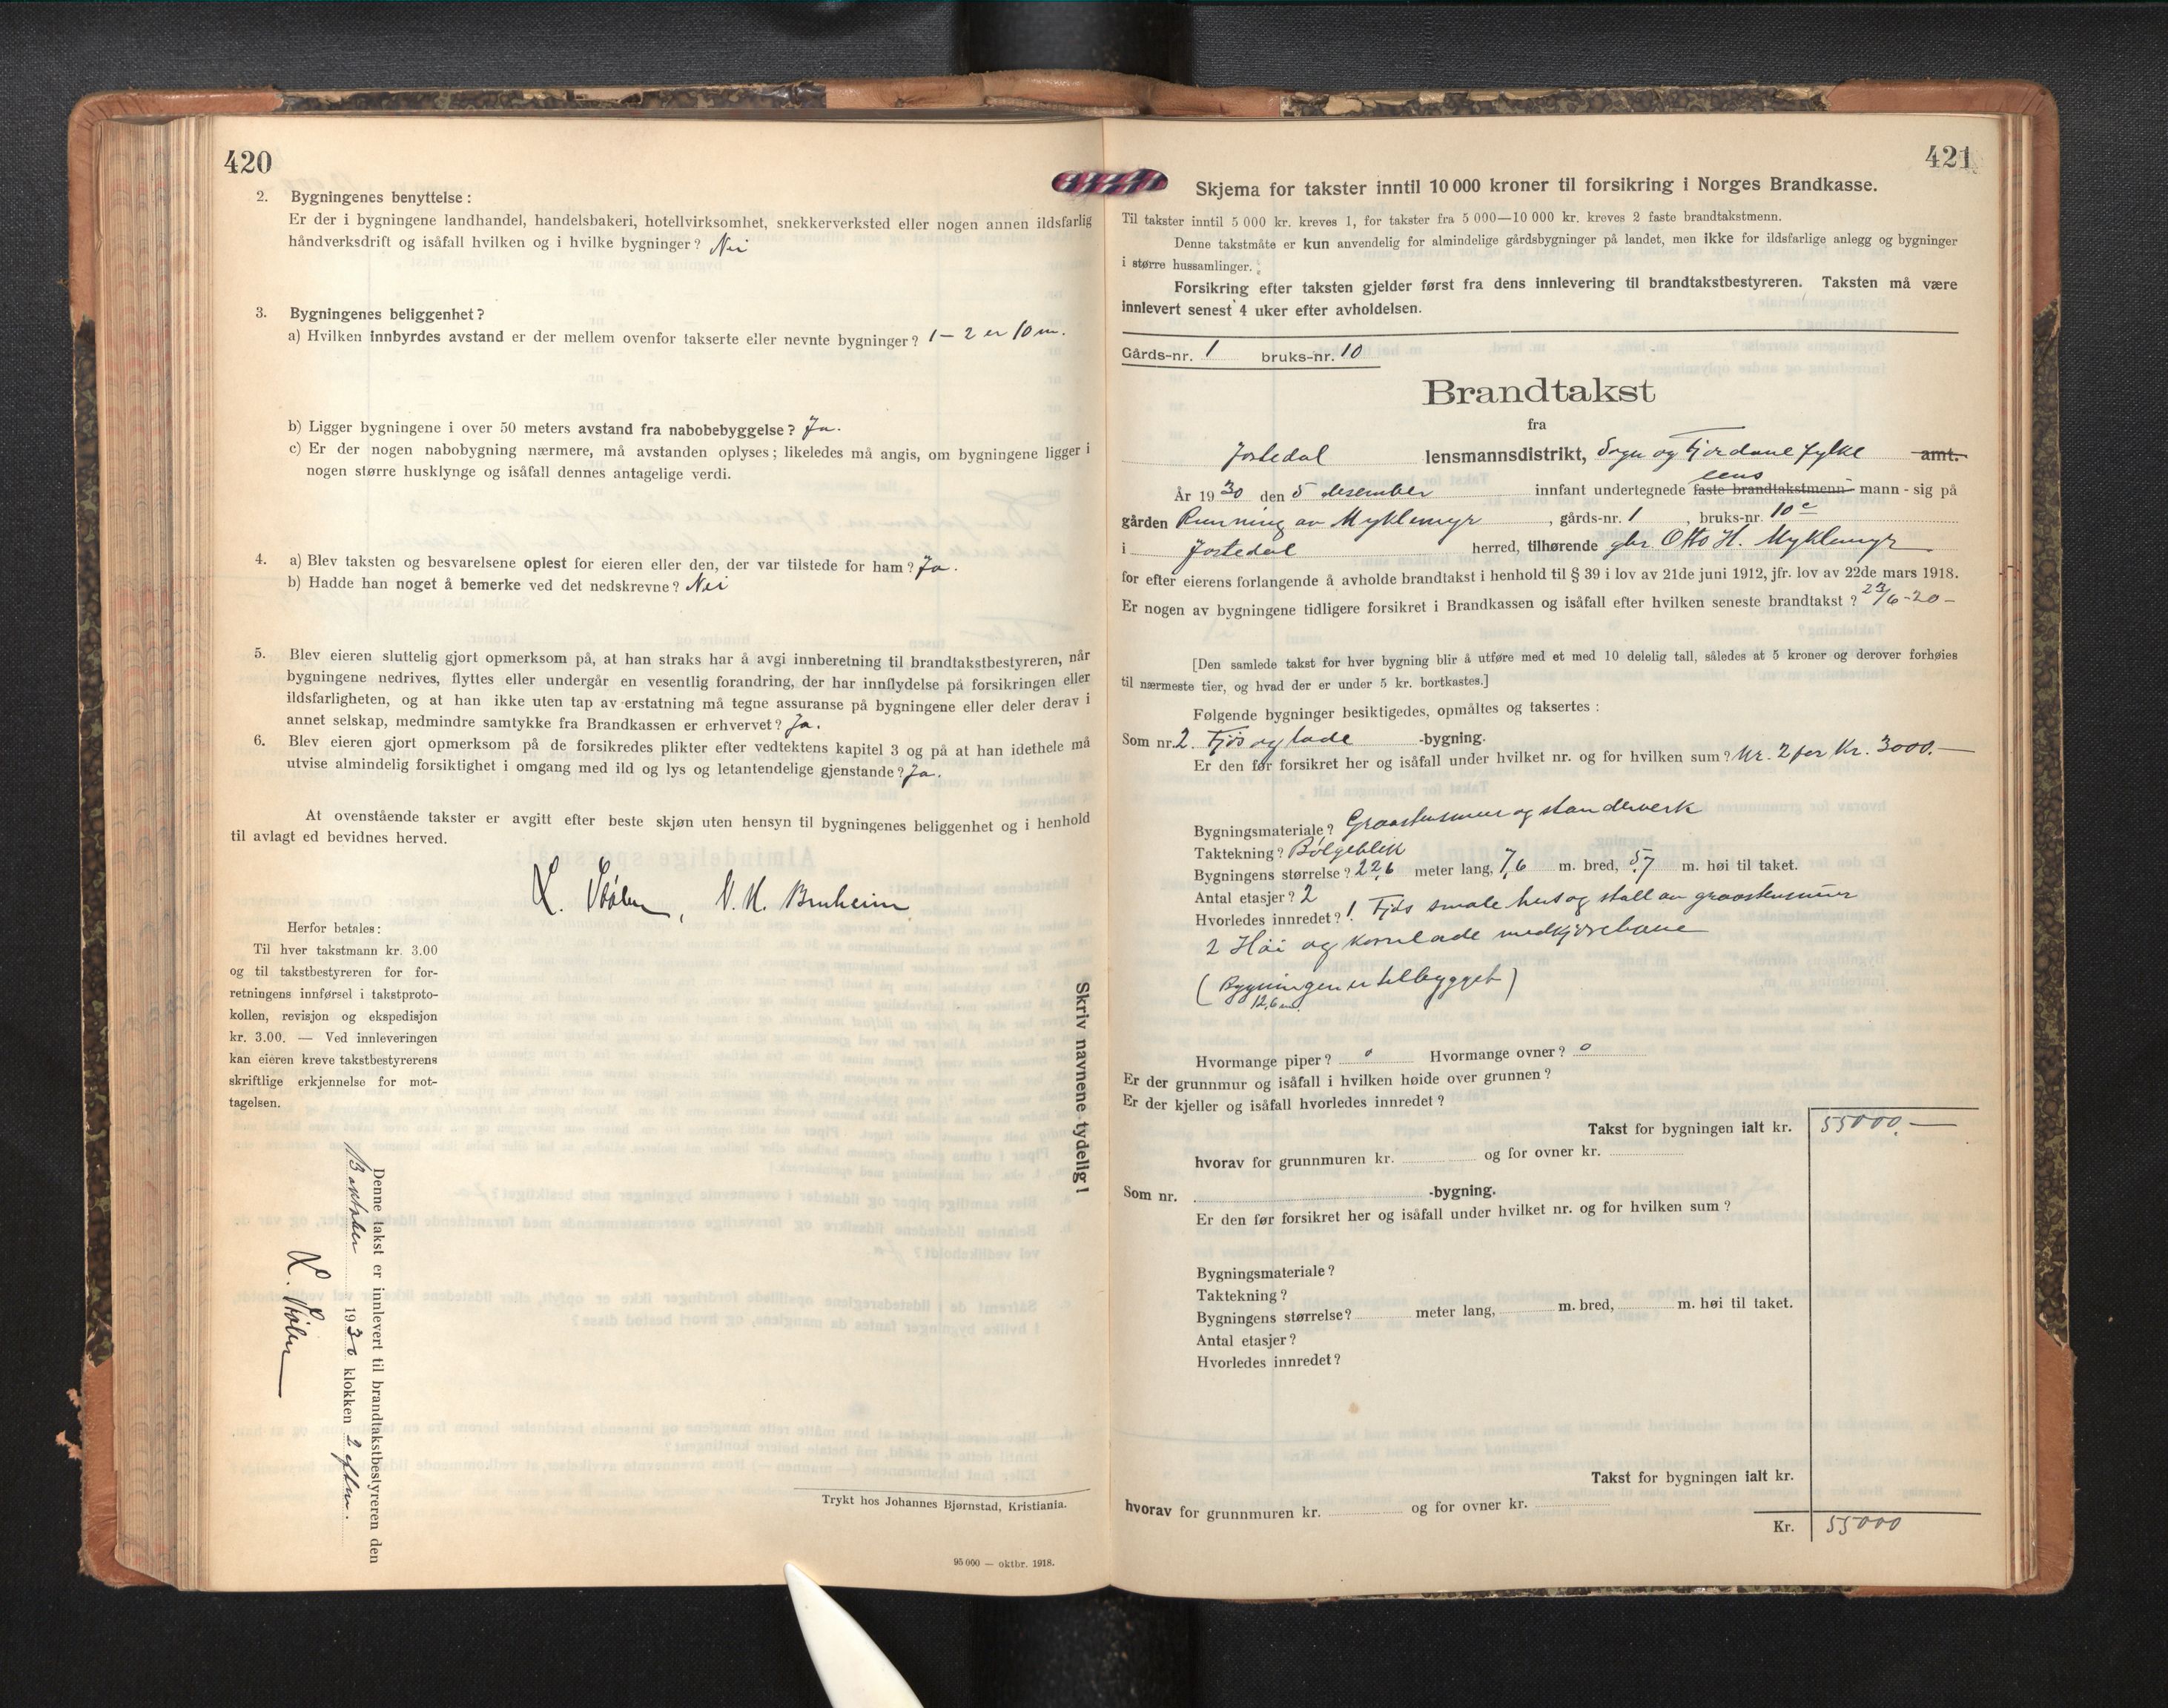 420
2. Bygningenes benyttelse :
Er der i bygningene landhandel, handelsbakeri, hotellvirksomhet, snekkerverksted eller nogen annen ildsfarlig
håndverksdrift og isåfall hvilken og i hvilke bygninger? Nei
3. Bygningenes beliggenhet?
a) Hvilken innbyrdes avstand er der mellem ovenfor takserte eller nevnte bygninger? 1 – 2 er 10 m.
b) Ligger bygningene i over 50 meters avstand fra nabobebyggelse? Ja.
c) Er der nogen nabobygning nærmere, må avstanden oplyses; likeledes må angis, om bygningene ligger i
nogen større husklynge og isåfall dennes antagelige verdi.
4. a) Blev taksten og besvarelsene oplest for eieren eller den, der var tilstede for ham? Ja.
b) Hadde han noget å bemerke ved det nedskrevne? Nei
5. Blev eieren sluttelig gjort opmerksom på, at han straks har å avgi innberetning til brandtakstbestyreren, når
bygningene nedrives, flyttes eller undergår en vesentlig forandring, der har innflydelse på forsikringen eller
ildsfarligheten, og at han ikke uten tap av erstatning må tegne assuranse på bygningene eller deler derav i
annet selskap, medmindre samtykke fra Brandkassen er erhvervet? Ja.
6. Blev eieren gjort opmerksom på de forsikredes plikter efter vedtektens kapitel 3 og på at han idethele må
utvise almindelig forsiktighet i omgang med ild og lys og letantendelige gjenstande? Ja.
At ovenstående takster er avgitt efter beste skjøn uten hensyn til bygningenes beliggenhet og i henhold
til avlagt ed bevidnes herved.
L. Stølen, N. H. Bruheim
Herfor betales:
Til hver takstmann kr. 3.00
og til takstbestyreren for for-
retningens innførsel i takstproto-
kollen, revisjon og ekspedisjon
kr. 3.00. — Ved innleveringen
kan eieren kreve takstbestyrerens
skriftlige erkjennelse for mot-
tagelsen.
Skriv navnene tydelig!
Denne takst er innlevert til brandtakstbestyreren den
1930 klokken 2 eftm.
L. Stølen
Trykt hos Johannes Bjørnstad, Kristiania.
95 000 — oktbr. 1918.
421
Skjema for takster inntil 10 000 kroner til forsikring i Norges Brandkasse.
Til takster inntil 5 000 kr. kreves 1, for takster fra 5 000—10 000 kr. kreves 2 faste brandtakstmenn.
Denne takstmåte er kun anvendelig for almindelige gårdsbygninger på landet, men ikke for ildsfarlige anlegg og bygninger
i større hussamlinger.
Forsikring efter taksten gjelder først fra dens innlevering til brandtakstbestyreren. Taksten må være
innlevert senest 4 uker efter avholdelsen.
Gårds-nr. 1 bruks-nr. 10
Brandtakst
fra
Jostedal lensmannsdistrikt, Sogn og Fjordane fylke amt.
lens
År 1930 den 5 desember innfant undertegnede faste brandtakstmenn mann - sig på
gården Running av Myklemyr, gårds-nr. 1, bruks-nr. 10 c
i Jostedal herred, tilhørende gbr. Otto H. Myklemyr
for efter eierens forlangende å avholde brandtakst i henhold til § 39 i lov av 21de juni 1912, jfr. lov av 22de mars 1918.
Er nogen av bygningene tidligere forsikret i Brandkassen og isåfall efter hvilken seneste brandtakst? 23/6-20-
[Den samlede takst for hver bygning blir å utføre med et med 10 delelig tall, således at 5 kroner og derover forhøies
til nærmeste tier, og hvad der er under 5 kr. bortkastes.]
Følgende bygninger besiktigedes, opmåltes og taksertes :
Som nr. 2. Fjøs og lade -bygning.
Er den før forsikret her og isåfall under hvilket nr. og for hvilken sum? Nr. 2 for Kr. 3000.—
Bygningsmateriale? Graastensmur og standerverk
Taktekning? Bølgeblek
Bygningens størrelse? 22,6 meter lang, 7,6 m. bred, 5,7 m. høi til taket.
Antal etasjer? 2
Hvorledes innredet? 1. Fjøs smale hus og stall av graastensmur
2 Høi og kornlade med kjørebane
(Bygningen er tilbygget)
12,6 m.
Hvormange piper? 0 Hvormange ovner? 0
Er der grunnmur og isåfall i hvilken høide over grunnen?
Er der kjeller og isåfall hvorledes innredet?
Takst for bygningen ialt kr. 55000.—
hvorav for grunnmuren kr. og for ovner kr.
Som nr. -bygning.
Er den før forsikret her og isåfall under hvilket nr. og for hvilken sum?
Bygningsmateriale?
Taktekning?
Bygningens størrelse? meter lang, m. bred, m. høi til taket.
Antal etasjer?
Hvorledes innredet?
Takst for bygningen ialt kr.
hvorav for grunnmuren kr. og for ovner kr.
Kr. 55000